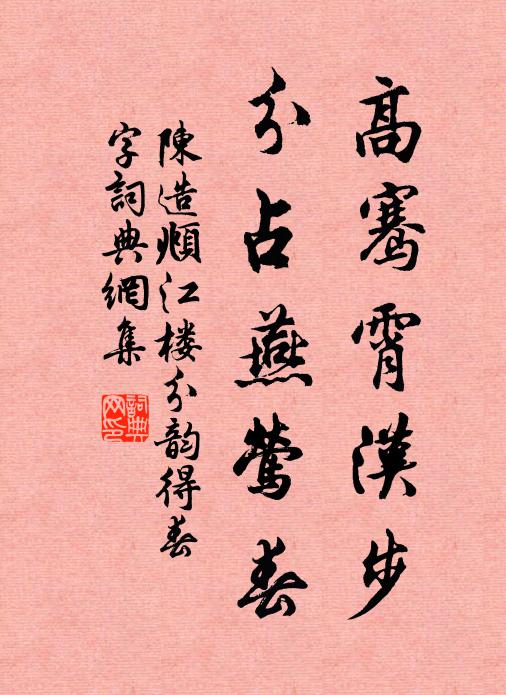 高騫霄漢步
分占燕鶯春
陳造頫江楼分韵得春
字詞典網集
詞典
网印